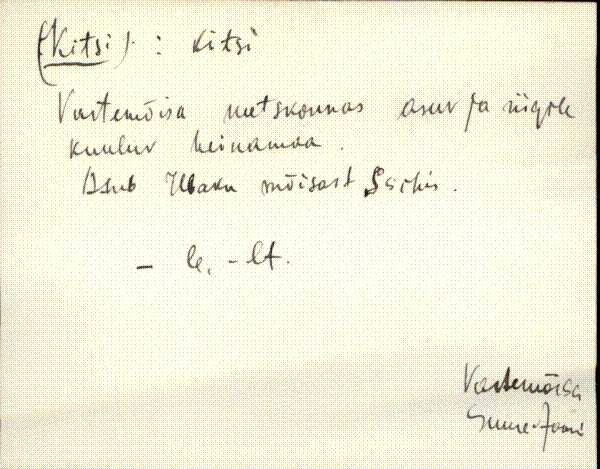 (Kitsi). : Kitsi
Vastemõisa metskonnas asuv ja riigile
kuuluv heinamaa.
Asub mõisast
- le, -lt.
Vastemõisa
Suure-Jaani